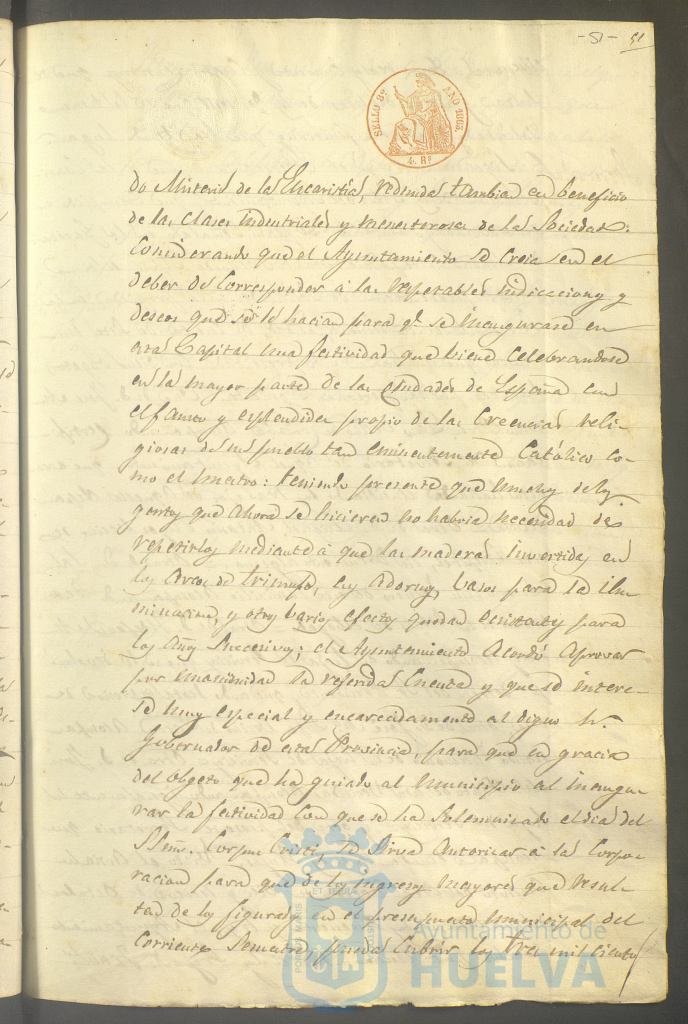 -51- 51
SELLO 8º AÑO 1863.
4. Rs
do Misterio de la Eucaristía, redunda tambien en beneficio
de las clases industriales y menesterosas de la Sociedad:
Considerando que el Ayuntamiento se creia en el
deber de corresponder á las respetables indicaciones y
deseos que se le hacian para q.e se inaugurase en
esta Capital una festividad que viene celebrandose
en la mayor parte de las Ciudades de España con
el fausto y esplendidez propio de las creencias reli-
giosas de un pueblo tan eminentemente Católico co-
mo el nuestro: teniendo presente que muchos de los
gastos que ahora se hicieren no habria necesidad de
repetirlos mediante á que las maderas invertidas en
los Arcos de triunfo, los adornos, vasos para la ilu-
minacion, y otros varios efectos quedan existentes para
los años sucesivos; el Ayuntamiento acordó aprovar
por unanimidad la referida Cuenta y que se intere-
se muy especial y encarecidamente al digno Sr.
Gobernador de esta Provincia, para que en gracia
del objeto que ha guiado al municipio al inaugu-
rar la festividad con que se ha solemnizado el dia del
SSmo. Corpus Cristi, se sirva autorizar á la Corpo-
racion para que de los ingresos mayores que resul-
tad de los figurados en el presupuesto municipal del
corriente Semestre, pueda cubrir los tres mil ciento
Ayuntamiento de
HUELVA